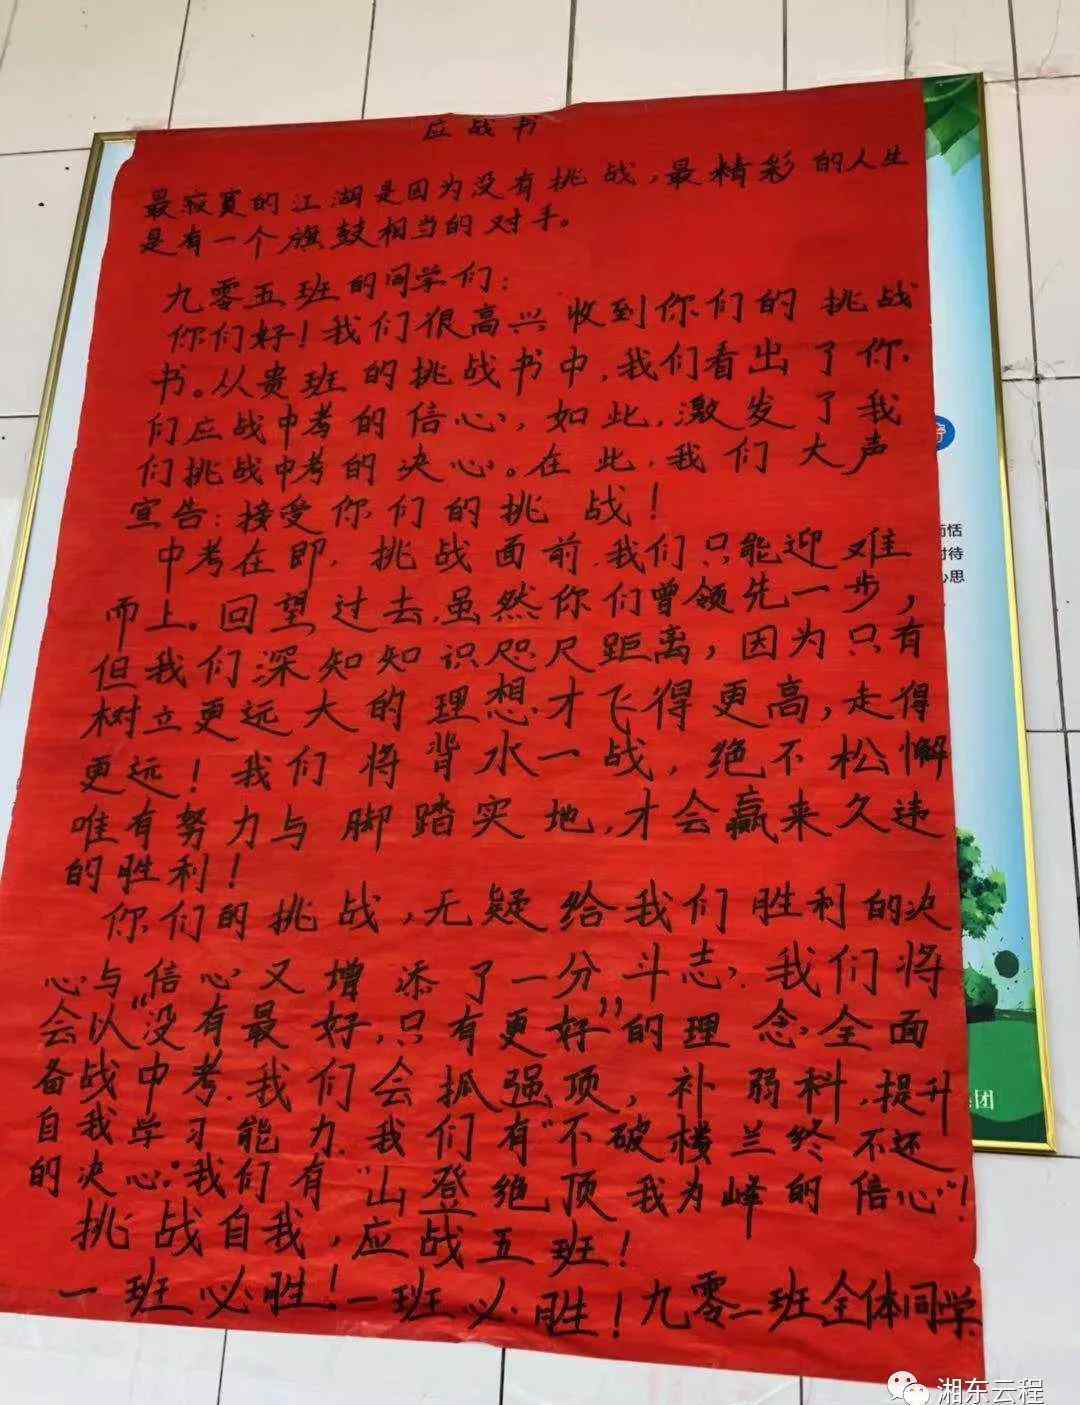 应战书
最寂寞的江湖是因为没有挑战,最精彩的人生
是有一个旗鼓相当的对手。
九零五班的同学们:
你们好!我们很高兴收到你们的挑战
书。从贵班的挑战书中,我们看出了你
们应战中考的信心,如此,激发了我
们挑战中考的决心。在此,我们大声
宣告:接受你们的挑战!
中考在即,挑战面前,我们只能迎难
而上。回望过去,虽然你们曾领先一步,
但我们深知知识咫尺距离,因为只有
树立更远大的理想,才飞得更高,走得
更远!我们将背水一战,绝不松懈
唯有努力与脚踏实地,才会赢来久违
的胜利!
你们的挑战,无疑给我们胜利的决
心与信心又增添了一分斗志,我们将
会以“没有最好,只有更好”的理念,全面
备战中考,我们会抓强项,补弱科,提升
自我学习能力,我们有“不破楼兰终不还
的决心”,我们有“山登绝顶我为峰的信心”!
挑战自我,应战五班!
一班必胜!一班必胜!九零一班全体同学
而恬
对待
心思
团
湘东云程